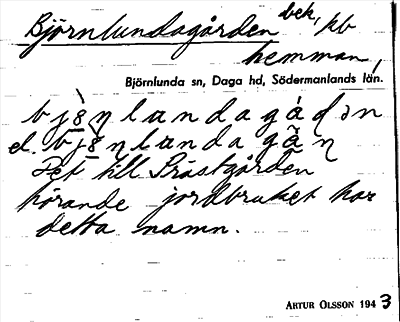 Björnlundagården bek, kb
hemman,
Björnlunda sn, Daga hd, Södermanlands län.
bjö̀ṇlandagá̇dən
el. bjö̀ṇlandagā̃ṇ
Det till Prästgården
hörande jordbruket har
detta namn.
ARTUR OLSSON 1943